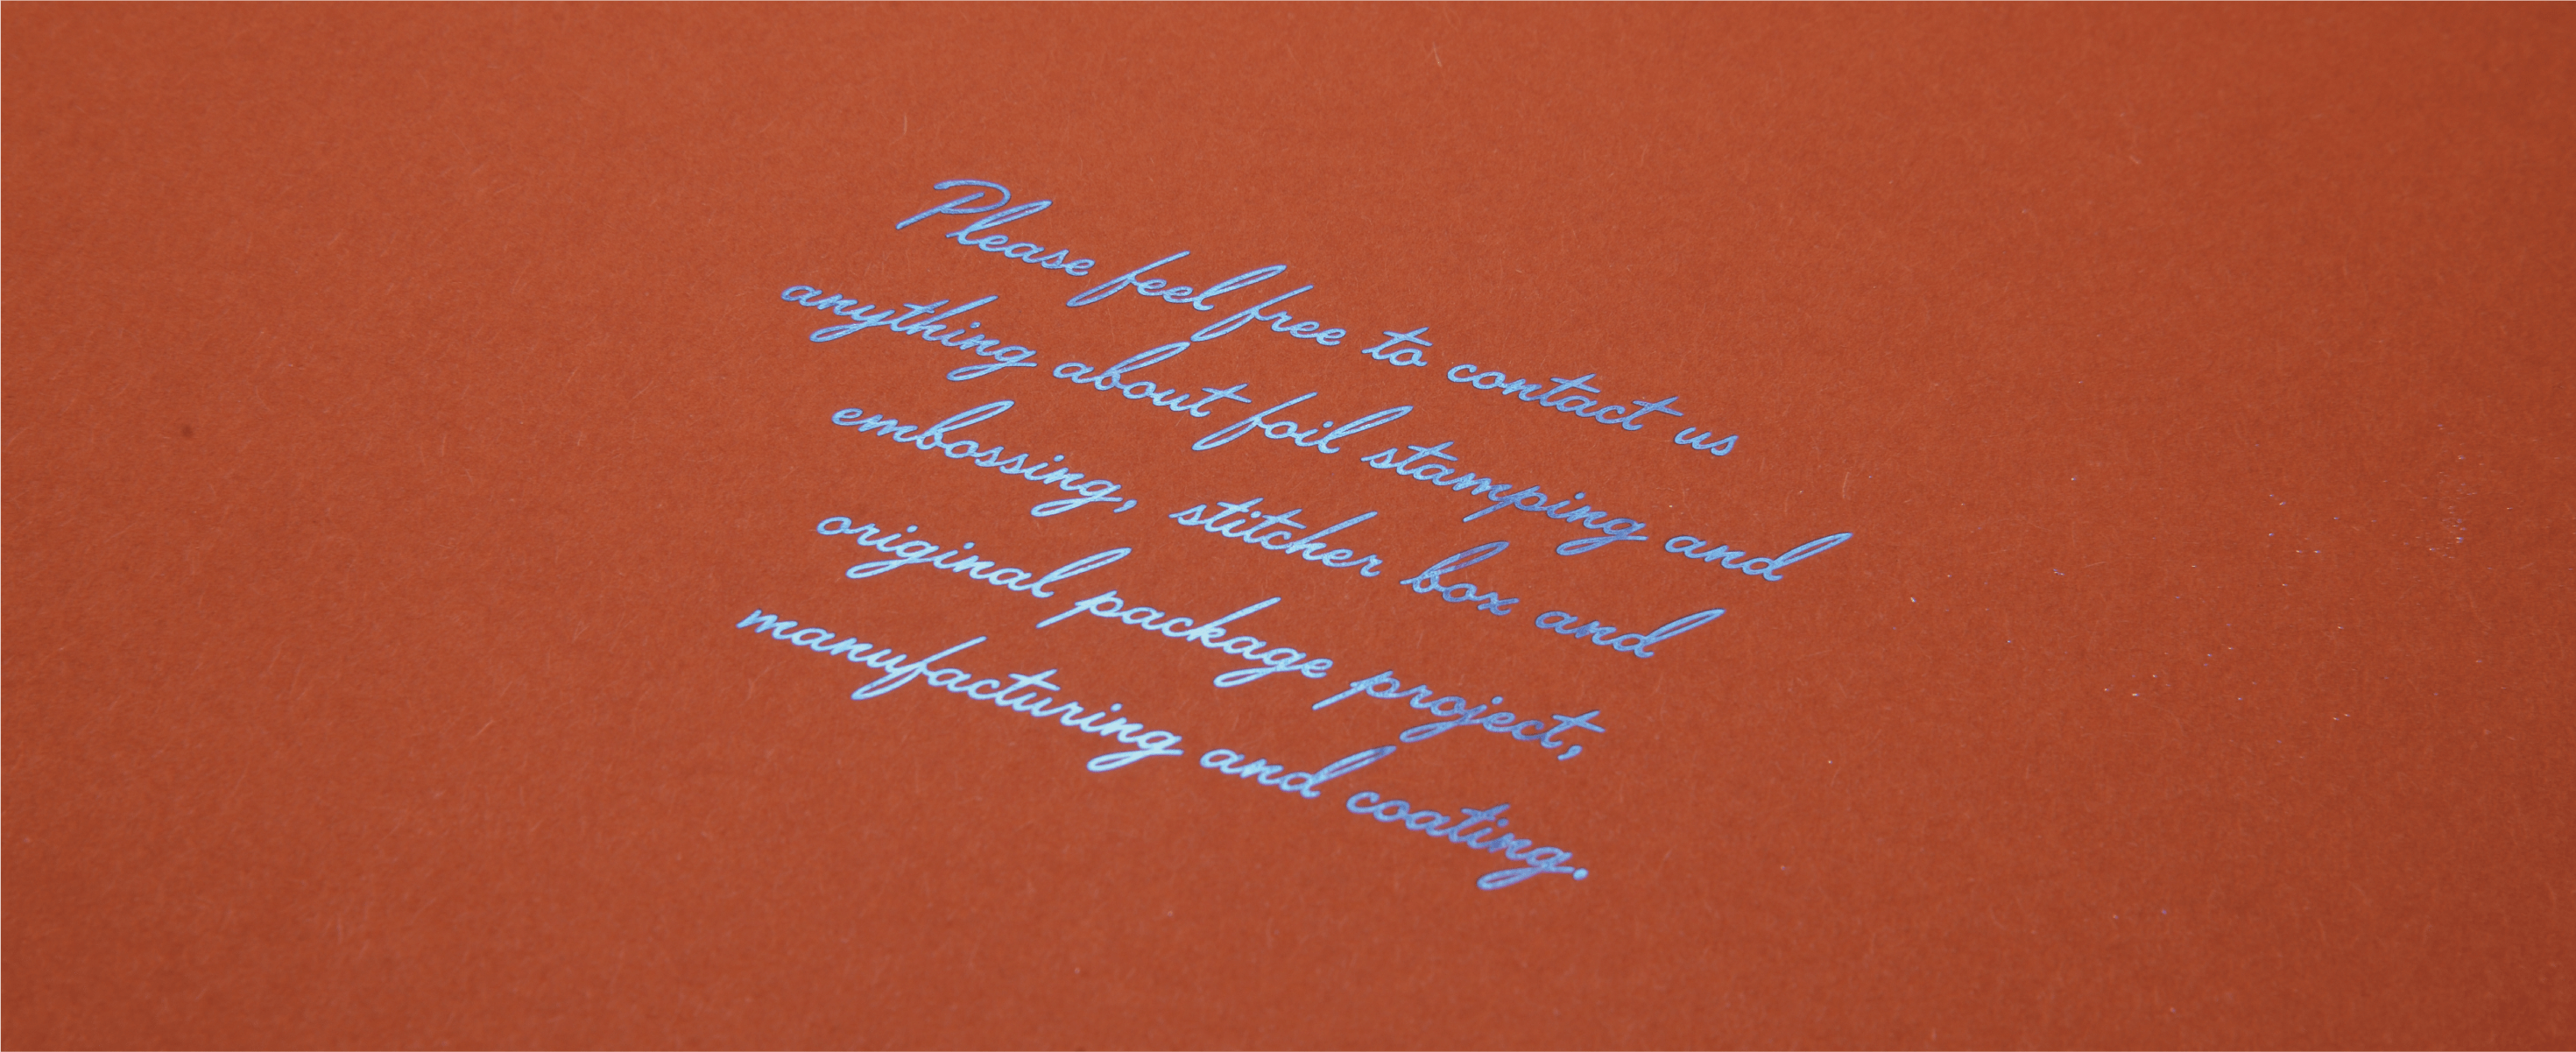 Please feel free to contact us
anything about foil stamping and
embossing, stitcher box and
original package project,
manufacturing and coating.